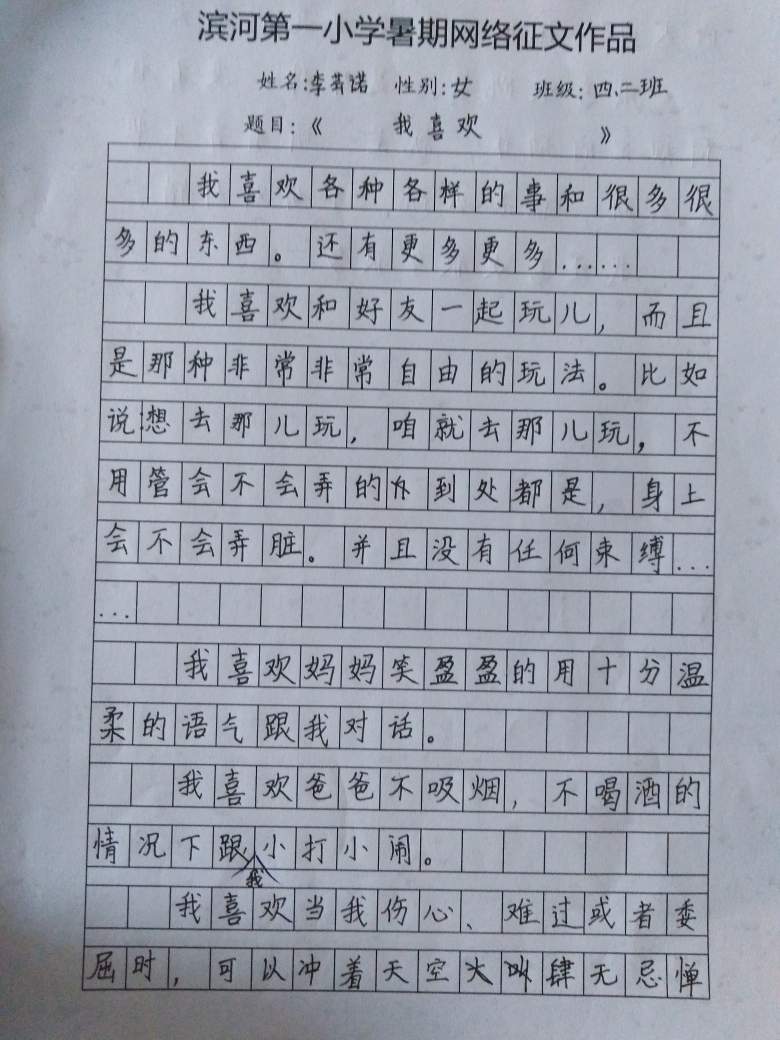 滨河第一小学暑期网络征文作品
姓名:李芸诺 性别:女 班级:四、二班
题目:《 我喜欢 》
我喜欢各种各样的事和很多很
多的东西。还有更多更多……
我喜欢和好友一起玩儿,而且
是那种非常非常自由的玩法。比如
说:想去那儿玩,咱就去那儿玩,不
用管会不会弄的到处都是,身上
会不会弄脏。并且没有任何束缚…
…
我喜欢妈妈笑盈盈的用十分温
柔的语气跟我对话。
我喜欢爸爸不吸烟,不喝酒的
情况下跟我小打小闹。
我喜欢当我伤心、难过或者委
屈时,可以冲着天空大叫肆无忌惮